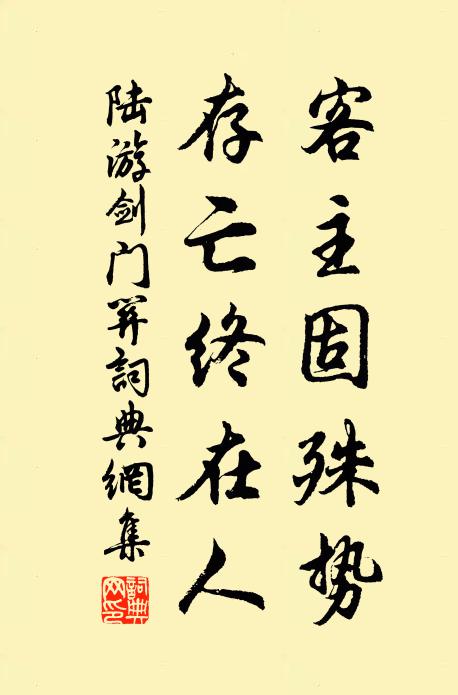 客主固殊势
存亡终在人
陆游剑门关詞典網集
詞典网印